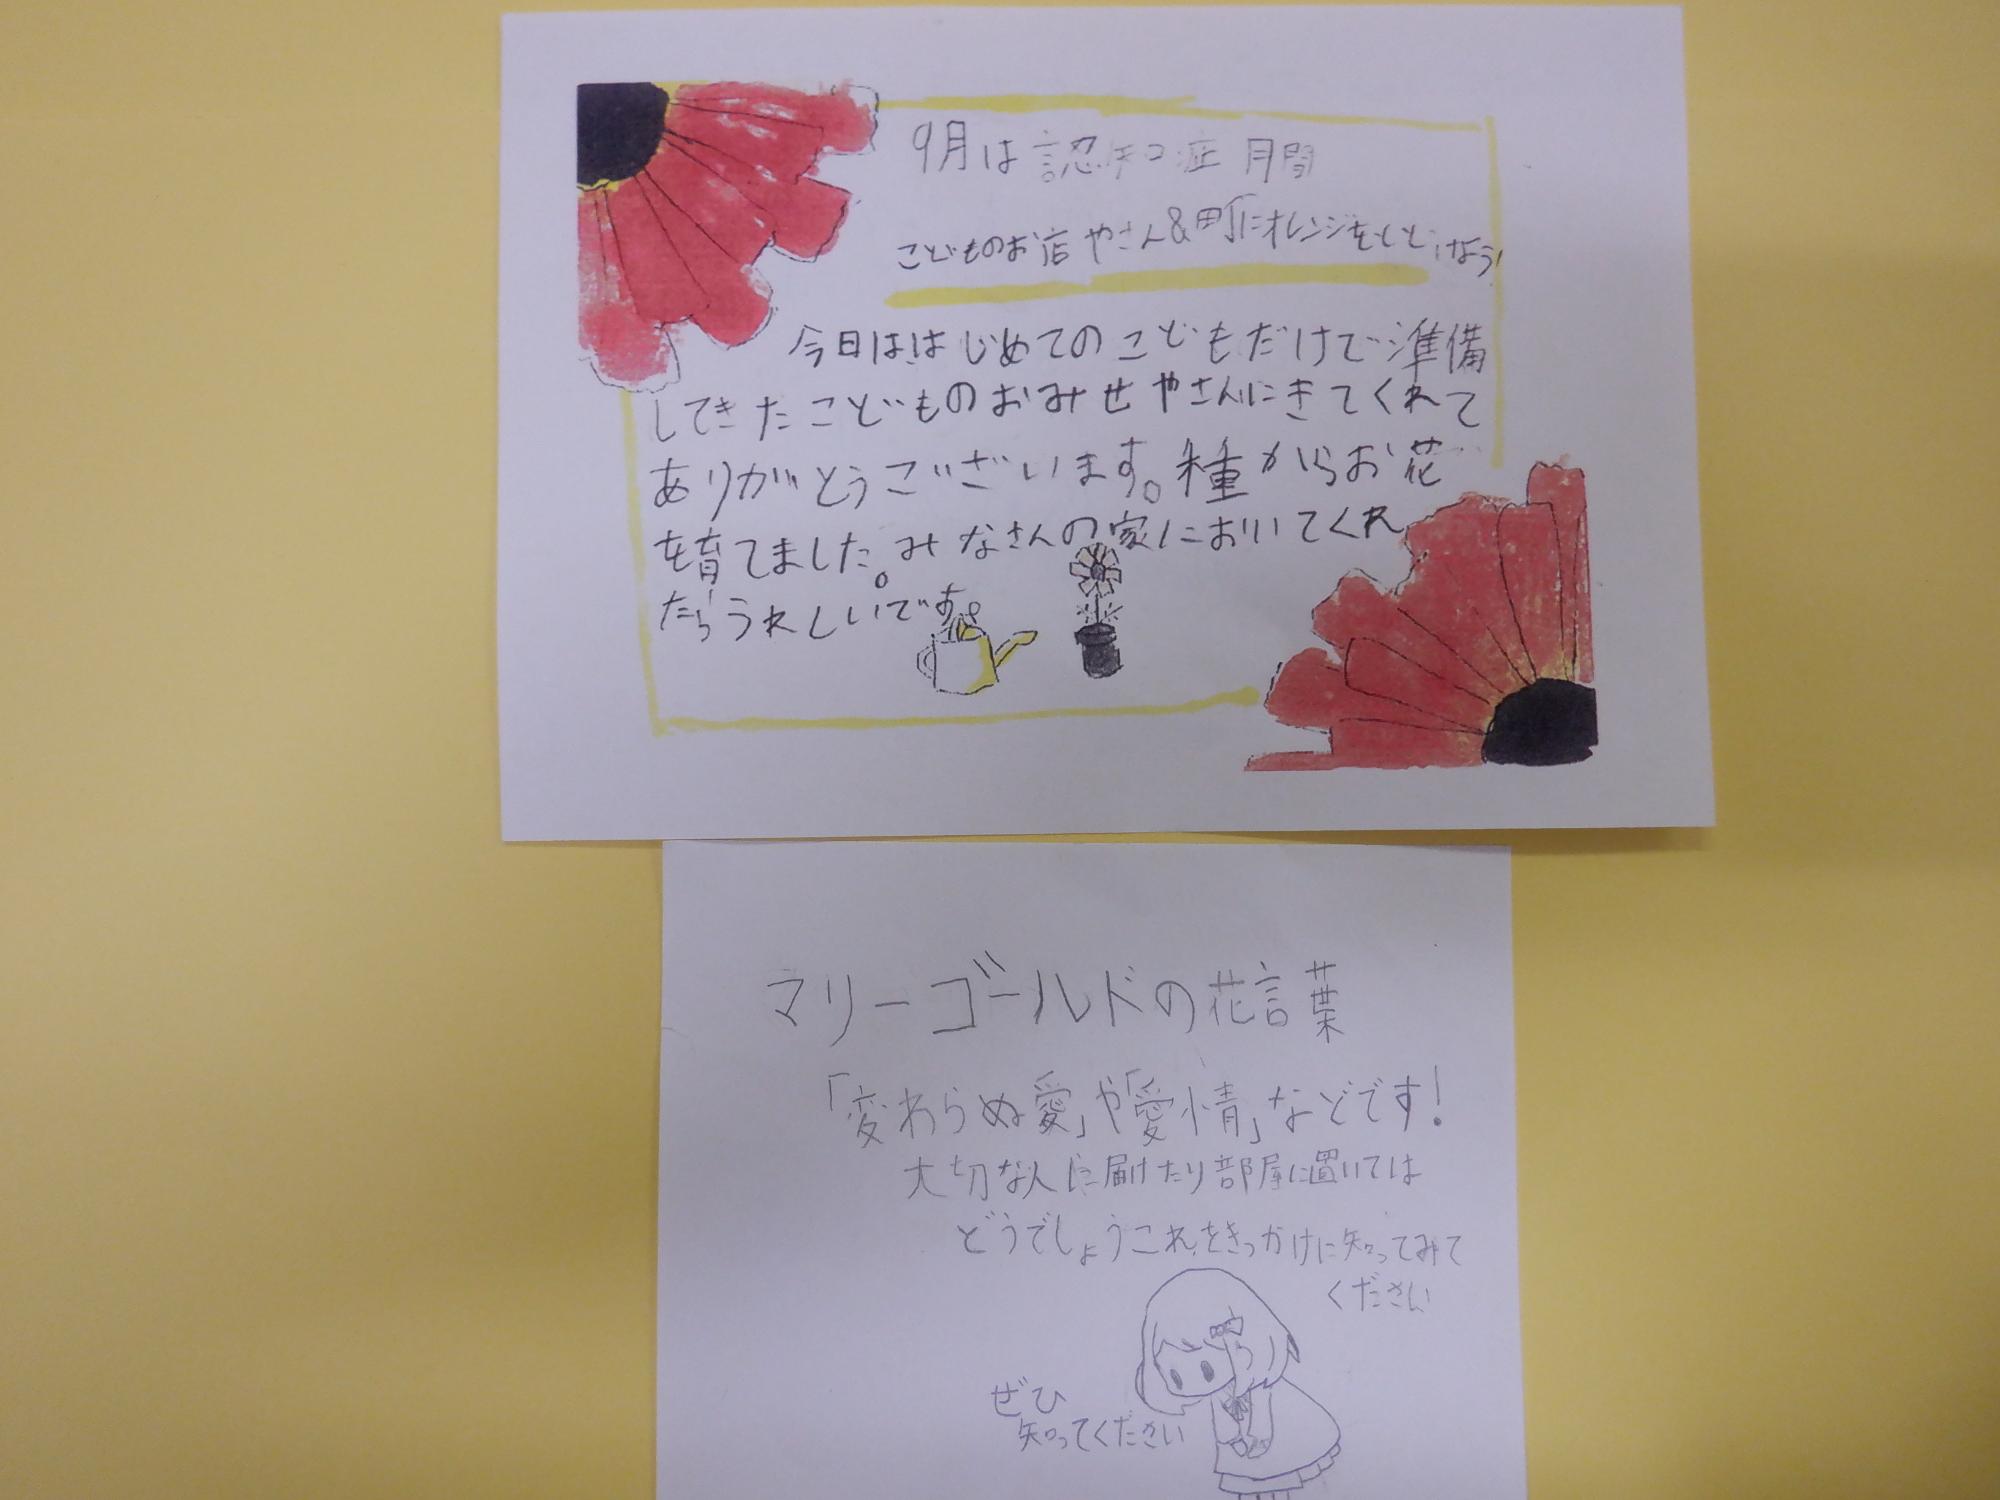 9月は認知症月間
こどものお店やさん&町にオレンジをとどけよう!
今日ははじめてのこどもだけで準備
してきたこどものおみせやさんにきてくれて
ありがとうございます。種からお花
を育てました。みなさんの家においてくれ
たらうれしいです。
マリーゴールドの花言葉
「変わらぬ愛」や「愛情」などです!
大切な人に届けたり部屋に置いては
どうでしょうこれをきっかけに知ってみて
ください
ぜひ
知ってください